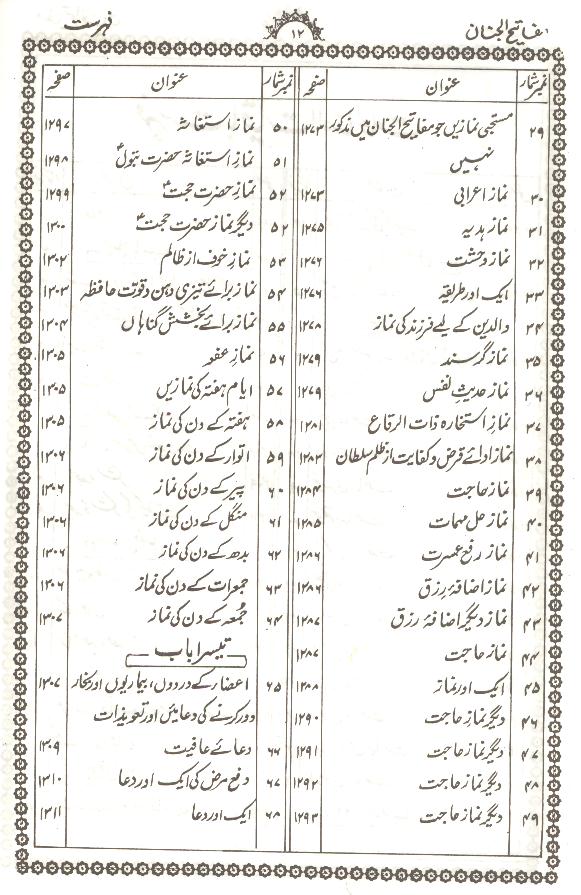 مفاتیح الجنان ۱۲ فہرست
نمبر شمار عنوان صفحہ
۲۹ مستحبی نمازیں جو مفاتیح الجنان میں مذکور ۱۲۷۳
نہیں
۳۰ نماز اعرابی ۱۲۷۳
۳۱ نماز ہدیہ ۱۲۷۵
۳۲ نماز وحشت ۱۲۷۶
۳۳ ایک اور طریقہ ۱۲۷۶
۳۴ والدین کے لیے فرزند کی نماز ۱۲۷۸
۳۵ نماز گرسنہ ۱۲۷۹
۳۶ نماز حدیثِ نفس ۱۲۷۹
۳۷ نماز استخارہ ذات الرقاع ۱۲۸۱
۳۸ نماز ادائے قرض و کفایت از ظلم سلطان ۱۲۸۳
۳۹ نماز حاجت ۱۲۸۴
۴۰ نماز حل مہمات ۱۲۸۵
۴۱ نماز رفع عسرت ۱۲۸۶
۴۲ نماز اضافۂ رزق ۱۲۸۶
۴۳ نماز دیگر اضافۂ رزق ۱۲۸۷
۴۴ نماز حاجت ۱۲۸۷
۴۵ ایک اور نماز ۱۲۸۸
۴۶ دیگر نمازِ حاجت ۱۲۹۰
۴۷ دیگر نماز حاجت ۱۲۹۱
۴۸ دیگر نماز حاجت ۱۲۹۲
۴۹ دیگر نماز حاجت ۱۲۹۳
نمبر شمار عنوان صفحہ
۵۰ نماز استغاثہ ۱۲۹۷
۵۱ نمازِ استغاثہ حضرت بتولؑ ۱۲۹۸
۵۲ نمازِ حضرت حجتؑ ۱۲۹۹
۵۲ دیگر نماز حضرت حجتؑ ۱۳۰۰
۵۳ نمازِ خوف از ظالم ۱۳۰۲
۵۴ نماز برائے تیزی ذہن و قوت حافظہ ۱۳۰۳
۵۵ نماز برائے بخشش گناہاں ۱۳۰۴
۵۶ نمازِ عفو ۱۳۰۵
۵۷ ایام ہفتہ کی نمازیں ۱۳۰۵
۵۸ ہفتہ کے دن کی نماز ۱۳۰۵
۵۹ اتوار کے دن کی نماز ۱۳۰۶
۶۰ پیر کے دن کی نماز ۱۳۰۶
۶۱ منگل کے دن کی نماز ۱۳۰۶
۶۲ بدھ کے دن کی نماز ۱۳۰۶
۶۳ جمعرات کے دن کی نماز ۱۳۰۶
۶۴ جمعہ کے دن کی نماز ۱۳۰۷
تیسرا باب
۶۵ اعضار کے دردوں، بیماریوں اور بخار ۱۳۰۷
دور کرنے کی دعائیں اور تعویذات
۶۶ دعائے عافیت ۱۳۰۹
۶۷ دفع مرض کی ایک اور دعا ۱۳۱۰
۶۸ ایک اور دعا ۱۳۱۱